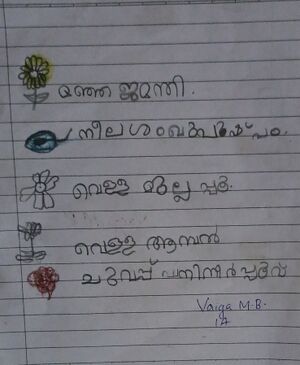 മഞ്ഞ ജമന്തി.
നീല ശംഖുപുഷ്പം.
വെള്ള മുല്ല പൂ.
വെള്ള ആമ്പൽ
ചുവപ്പ് പനിനീർപ്പൂവ്
Vaiga M.B.
1A